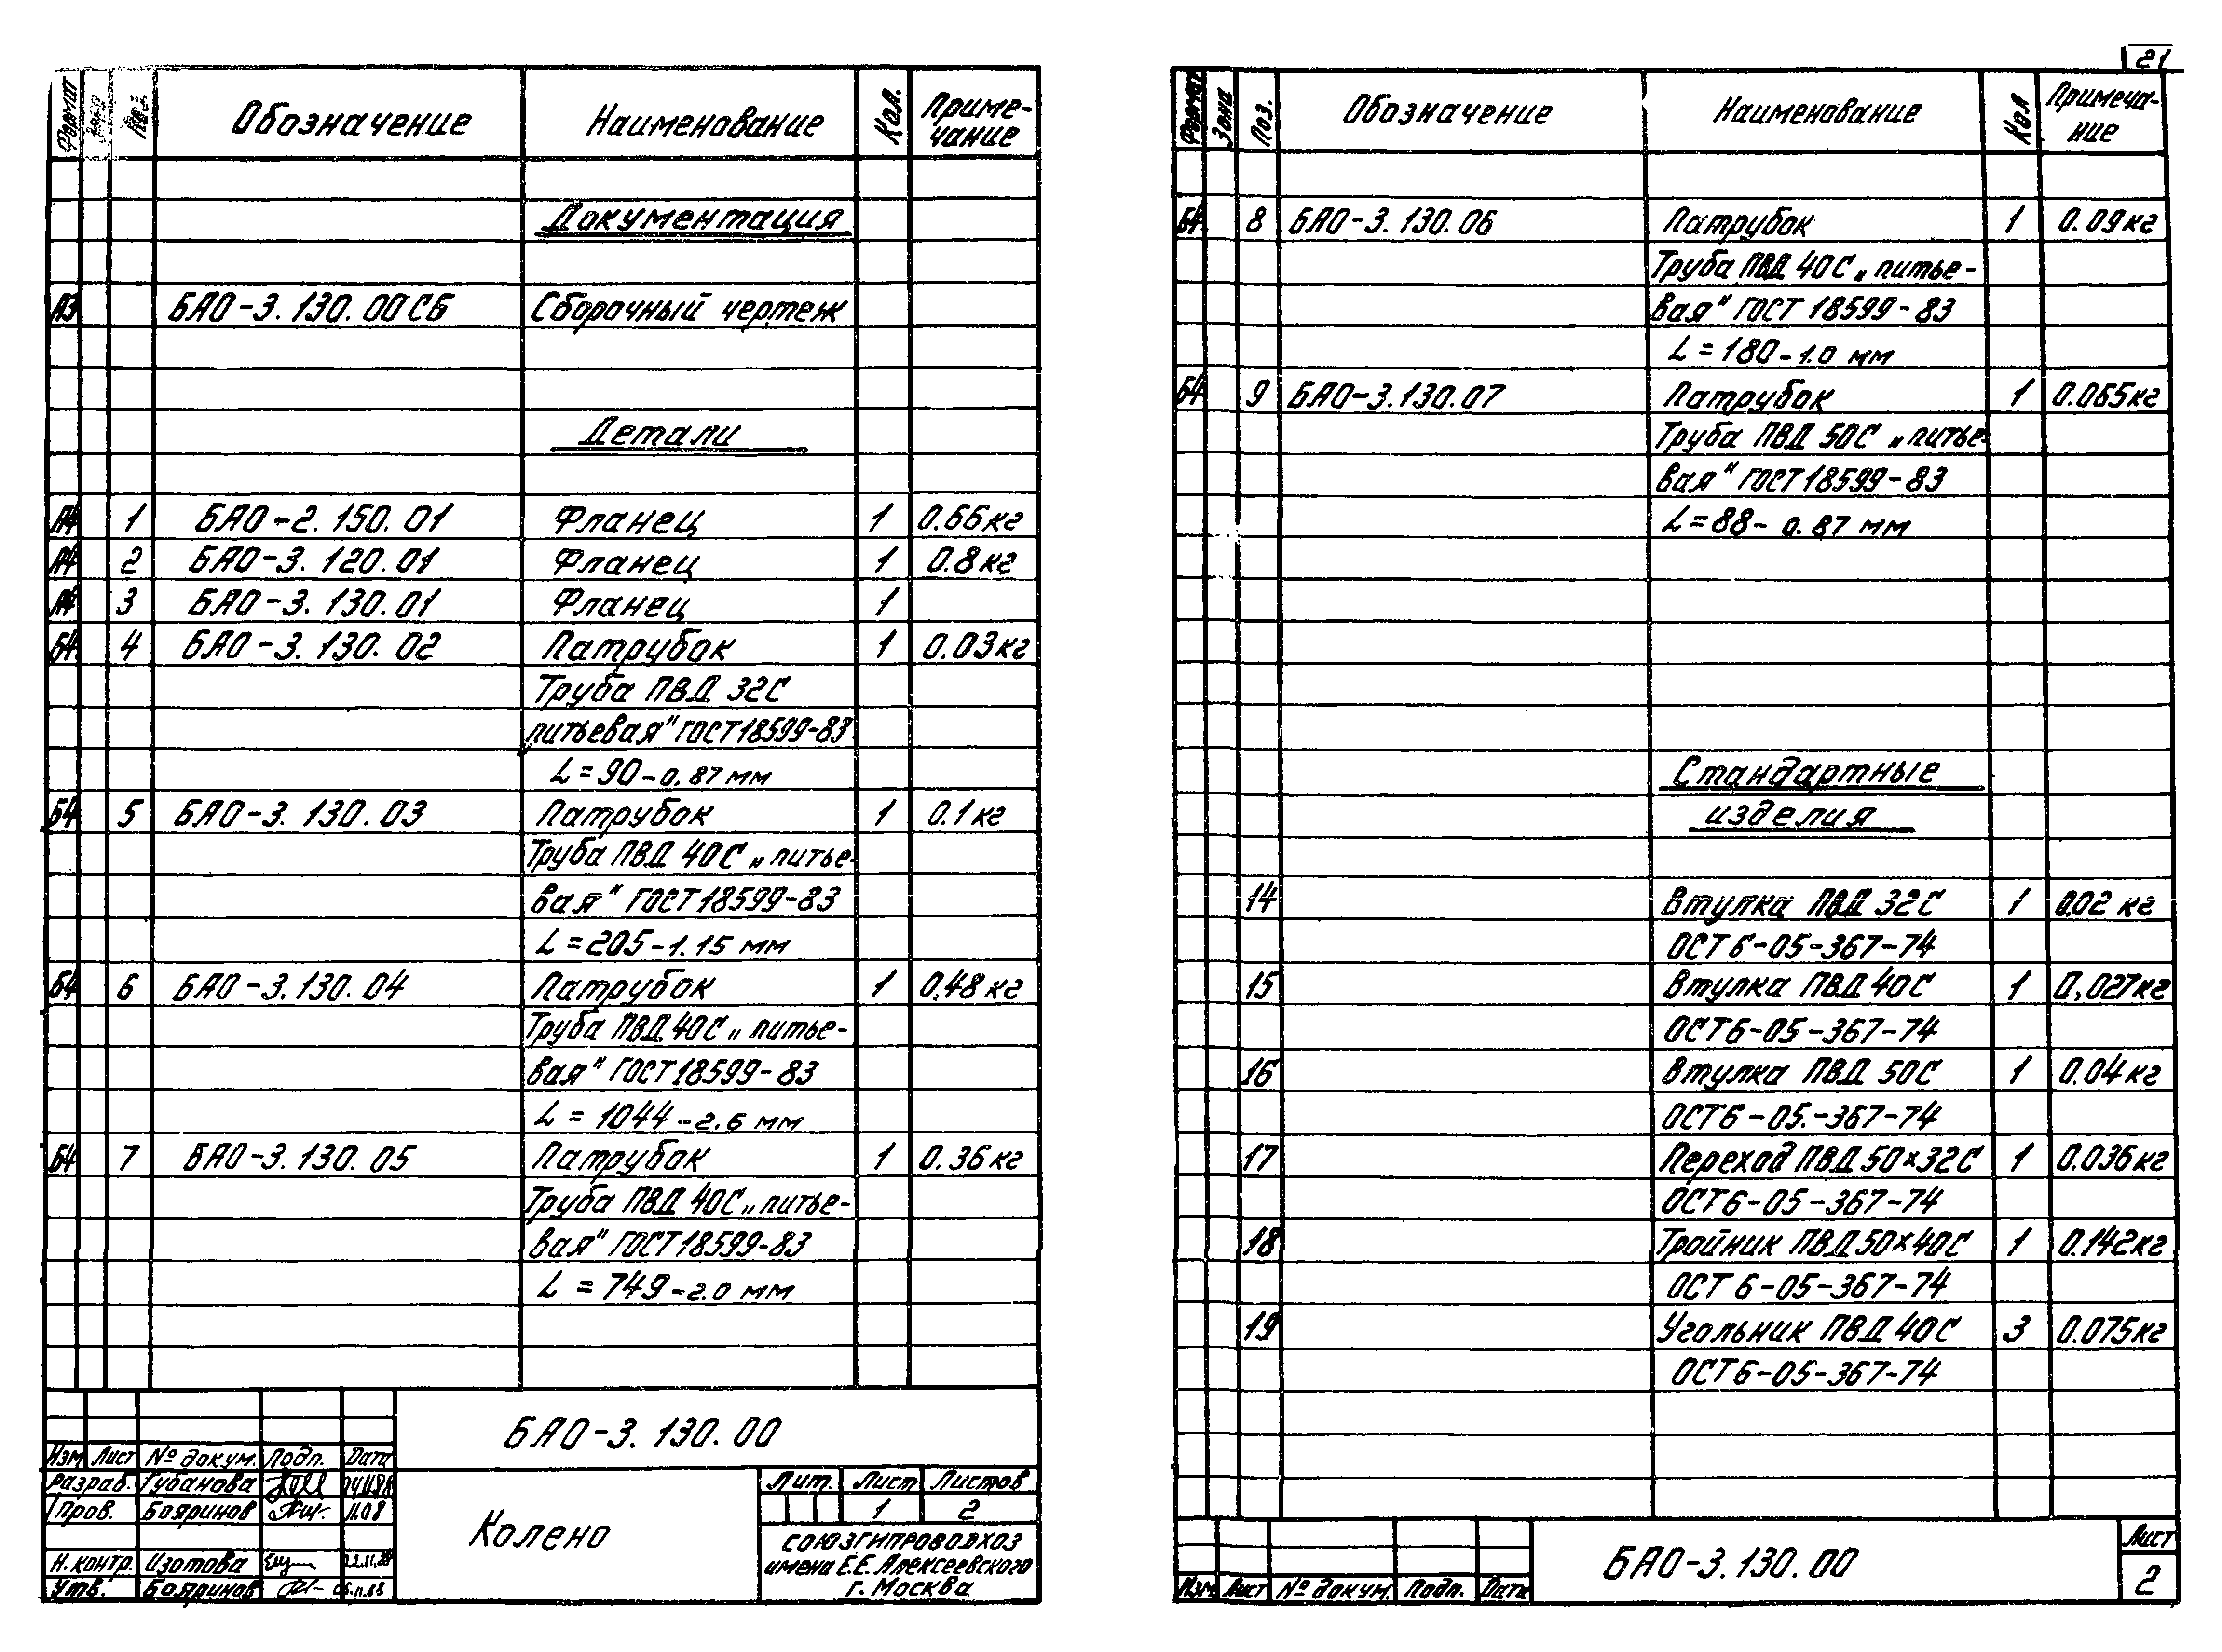 Формат Поз. Обозначение Наименование Кол. Приме-
чание
Документация
А3 БАО-3.130.00СБ Сборочный чертеж
Детали
А4 1 БАО-2.150.01 Фланец 1 0.66кг
А4 2 БАО-3.120.01 Фланец 1 0.8кг
А4 3 БАО-3.130.01 Фланец 1
БЧ 4 БАО-3.130.02 Патрубок 1 0.03кг
Труба ПВД 32С
питьевая" ГОСТ18599-83
L=90-0.87 мм
БЧ 5 БАО-3.130.03 Патрубок 1 0.1кг
Труба ПВД 40С „питье-
вая" ГОСТ18599-83
L=205-1.15 мм
БЧ 6 БАО-3.130.04 Патрубок 1 0.48кг
Труба ПВД 40С „питье-
вая" ГОСТ18599-83
L=1044-2.6 мм
БЧ 7 БАО-3.130.05 Патрубок 1 0.36кг
Труба ПВД 40С „питье-
вая" ГОСТ18599-83
L=749-2.0 мм
БАО-3.130.00
Изм Лист № докум. Подп. Дата
Разраб. Губанова
Пров. Бояринов 11.08
Н.контр. Изотова 22.11.88
Утв. Бояринов
Колено
Лит. Лист Листов
1 2
СОЮЗГИПРОВОДХОЗ
имени Е.Е. Алексеевского
г. Москва
21
Формат Зона Поз. Обозначение Наименование Кол Примеча-
ние
БЧ 8 БАО-3.130.06 Патрубок 1 0.09кг
Труба ПВД 40С „питье-
вая" ГОСТ 18599-83
L=180-1.0 мм
БЧ 9 БАО-3.130.07 Патрубок 1 0.065кг
Труба ПВД 50С „питье-
вая" ГОСТ18599-83
L=88-0.87 мм
Стандартные
изделия
14 Втулка ПВД 32С 1 0.02 кг
ОСТ6-05-367-74
15 Втулка ПВД 40С 1 0,027кг
ОСТ6-05-367-74
16 Втулка ПВД 50С 1 0.04кг
ОСТ6-05-367-74
17 Переход ПВД 50×32С 1 0.036кг
ОСТ6-05-367-74
18 Тройник ПВД 50×40С 1 0.142кг
ОСТ 6-05-367-74
19 Угольник ПВД 40С 3 0.075кг
ОСТ6-05-367-74
БАО-3.130.00
Изм Лист № докум. Подп. Дата
Лист
2